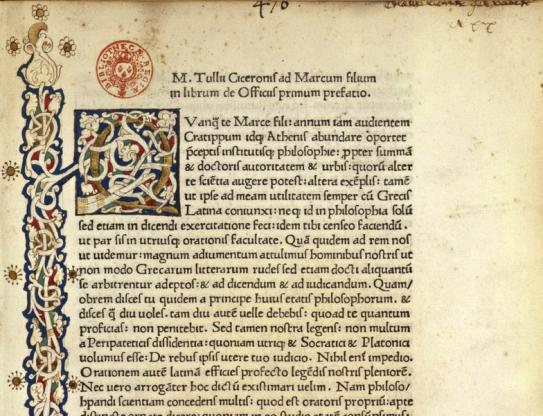 470
BIBLIOTHECÆ REGIÆ
M. Tullii Ciceronis ad Marcum filium
in librum de Officiis primum prefatio.
Vanq̃ te Marce fili: annum iam audientem
Cratippum idq; Athenis abundare oportet
p̃ceptis institutisq; philosophie: ꝓpter summã
& doctoris autoritatem & urbis: quorũ alter
te sciẽtia augere potest: altera exẽplis: tamẽ
ut ipse ad meam utilitatem semper cũ Grecis
Latina coniunxi: neq; id in philosophia solũ
sed etiam in dicendi exercitatione feci: idem tibi censeo faciendũ.
ut par sis in utriusq; orationis facultate. Quã quidem ad rem nos
ut uidemur: magnum adiumentum attulimus hominibus nostris ut
non modo Grecarum litterarum rudes sed etiam docti aliquantũ
se arbitrentur adeptos: & ad dicendum & ad iudicandum. Quam/
obrem disces tu quidem a principe huius etatis philosophorum. &
disces q̃ diu uoles. tam diu autẽ uelle debebis: quoad te quantum
proficias: non penitebit. Sed tamen nostra legens: non multum
a Peripateticis dissidentia: quoniam utriq; & Socratici & Platonici
uolumus esse: De rebus ipsis utere tuo iudicio. Nihil enĩ impedio.
Orationem autẽ latinã efficies profecto legẽdis nostris pleniorẽ.
Nec uero arrogãter hoc dictũ existimari uelim. Nam philoso/
phandi scientiam concedens multis: quod est oratoris proprũ: apte
distincte ornate dicere: quoniam in eo studio etatẽ consũpsimus: